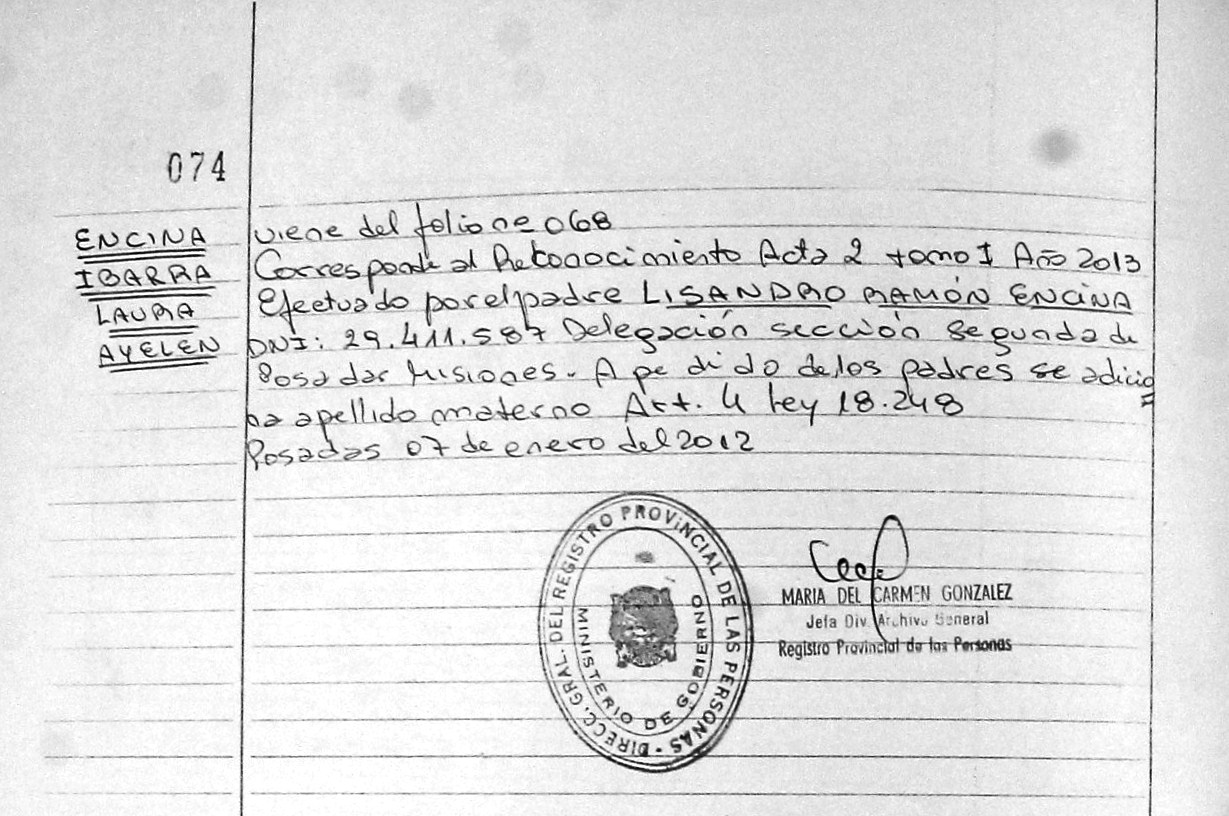 074
ENCINA
IBARRA
LAURA
AYELEN
viene del folio nº 068
Corresponde al Reconocimiento Acta 2 tomo I Año 2013
Efectuado por el padre LISANDRO RAMÓN ENCINA
DNI: 29.411.587 Delegación sección Segunda de
Posadas Misiones. A pedido de los padres se adicio
na apellido materno Art. 4 Ley 18.248
Posadas 07 de enero del 2012
DIRECC. GRAL. DEL REGISTRO PROVINCIAL DE LAS PERSONAS
MINISTERIO DE GOBIERNO
MARIA DEL CARMEN GONZALEZ
Jefa Div. Archivo General
Registro Provincial de las Personas